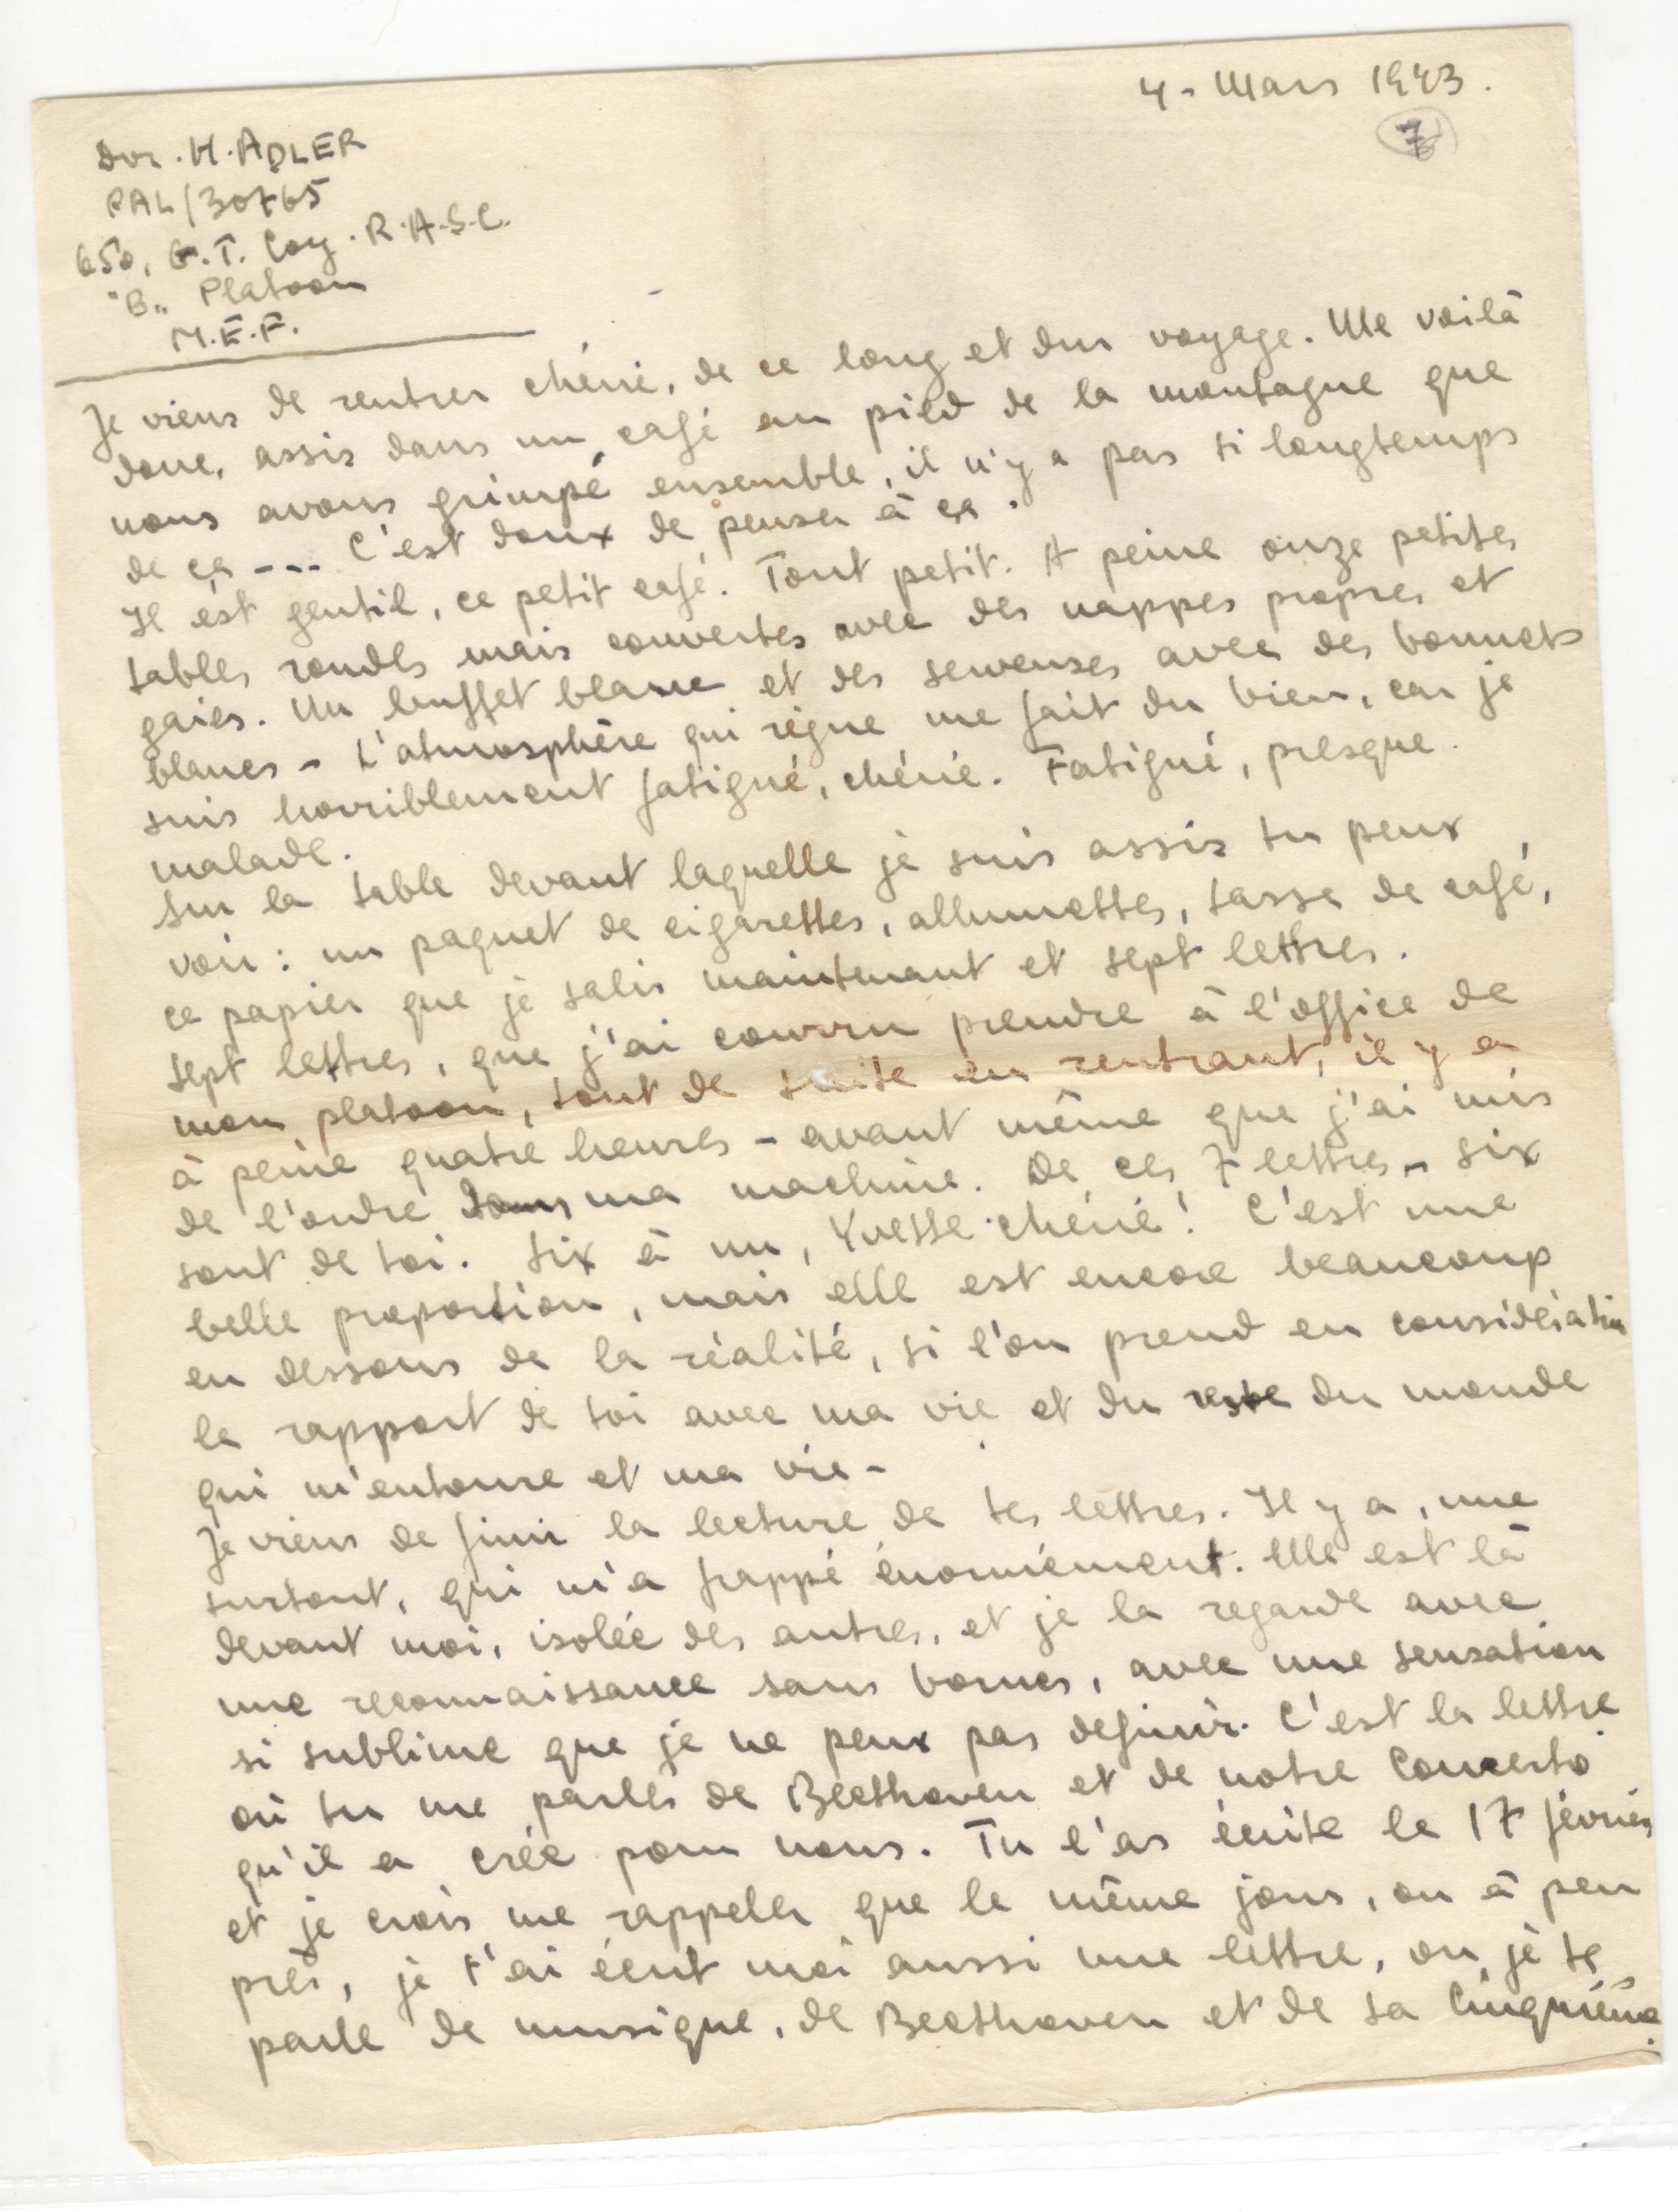 4 - Mars 1943.
7
Dvr. H. ADLER
PAL/30765
650, G.T. Coy. R.A.S.C.
"B" Platoon
M.E.F.
Je viens de rentrer chérie, de ce long et dur voyage. Me voilà
donc, assis dans un café au pied de la montagne que
nous avons grimpé ensemble, il n'y a pas si longtemps
de ça --- C'est doux de penser à ça.
Il est gentil, ce petit café. Tout petit. A peine onze petites
tables rondes mais couvertes avec des nappes propres et
gaies. Un buffet blanc et des serveuses avec des bonnets
blancs - L'atmosphère qui règne me fait du bien, car je
suis horriblement fatigué, chérie. Fatigué, presque
malade.
Sur la table devant laquelle je suis assis tu peux
voir : un paquet de cigarettes, allumettes, tasse de café,
ce papier que je salis maintenant et sept lettres.
Sept lettres, que j'ai courru prendre à l'office de
mon platoon, tout de suite en rentrant, il y a
à peine quatre heures - avant même que j'ai mis
de l'ordre dans ma machine. De ces 7 lettres - six
sont de toi. Six à un, Yvette chérie! C'est une
belle proportion, mais elle est encore beaucoup
en dessous de la réalité, si l'on prend en considération
le rapport de toi avec ma vie et du reste du monde
qui m'entoure et ma vie -
Je viens de finir la lecture de tes lettres. Il y a, une
surtout, qui m'a frappé énormément. Elle est là
devant moi, isolée des autres, et je la regarde avec
une reconnaissance sans bornes, avec une sensation
si sublime que je ne peux pas definir. C'est la lettre
où tu me parles de Beethoven et de notre Concerto
qu'il a crée pour nous. Tu l'as écrite le 17 février
et je crois me rappeler que le même jour, ou à peu
près, je t'ai écrit moi aussi une lettre, ou je te
parle de musique, de Beethoven et de sa Cinquième.